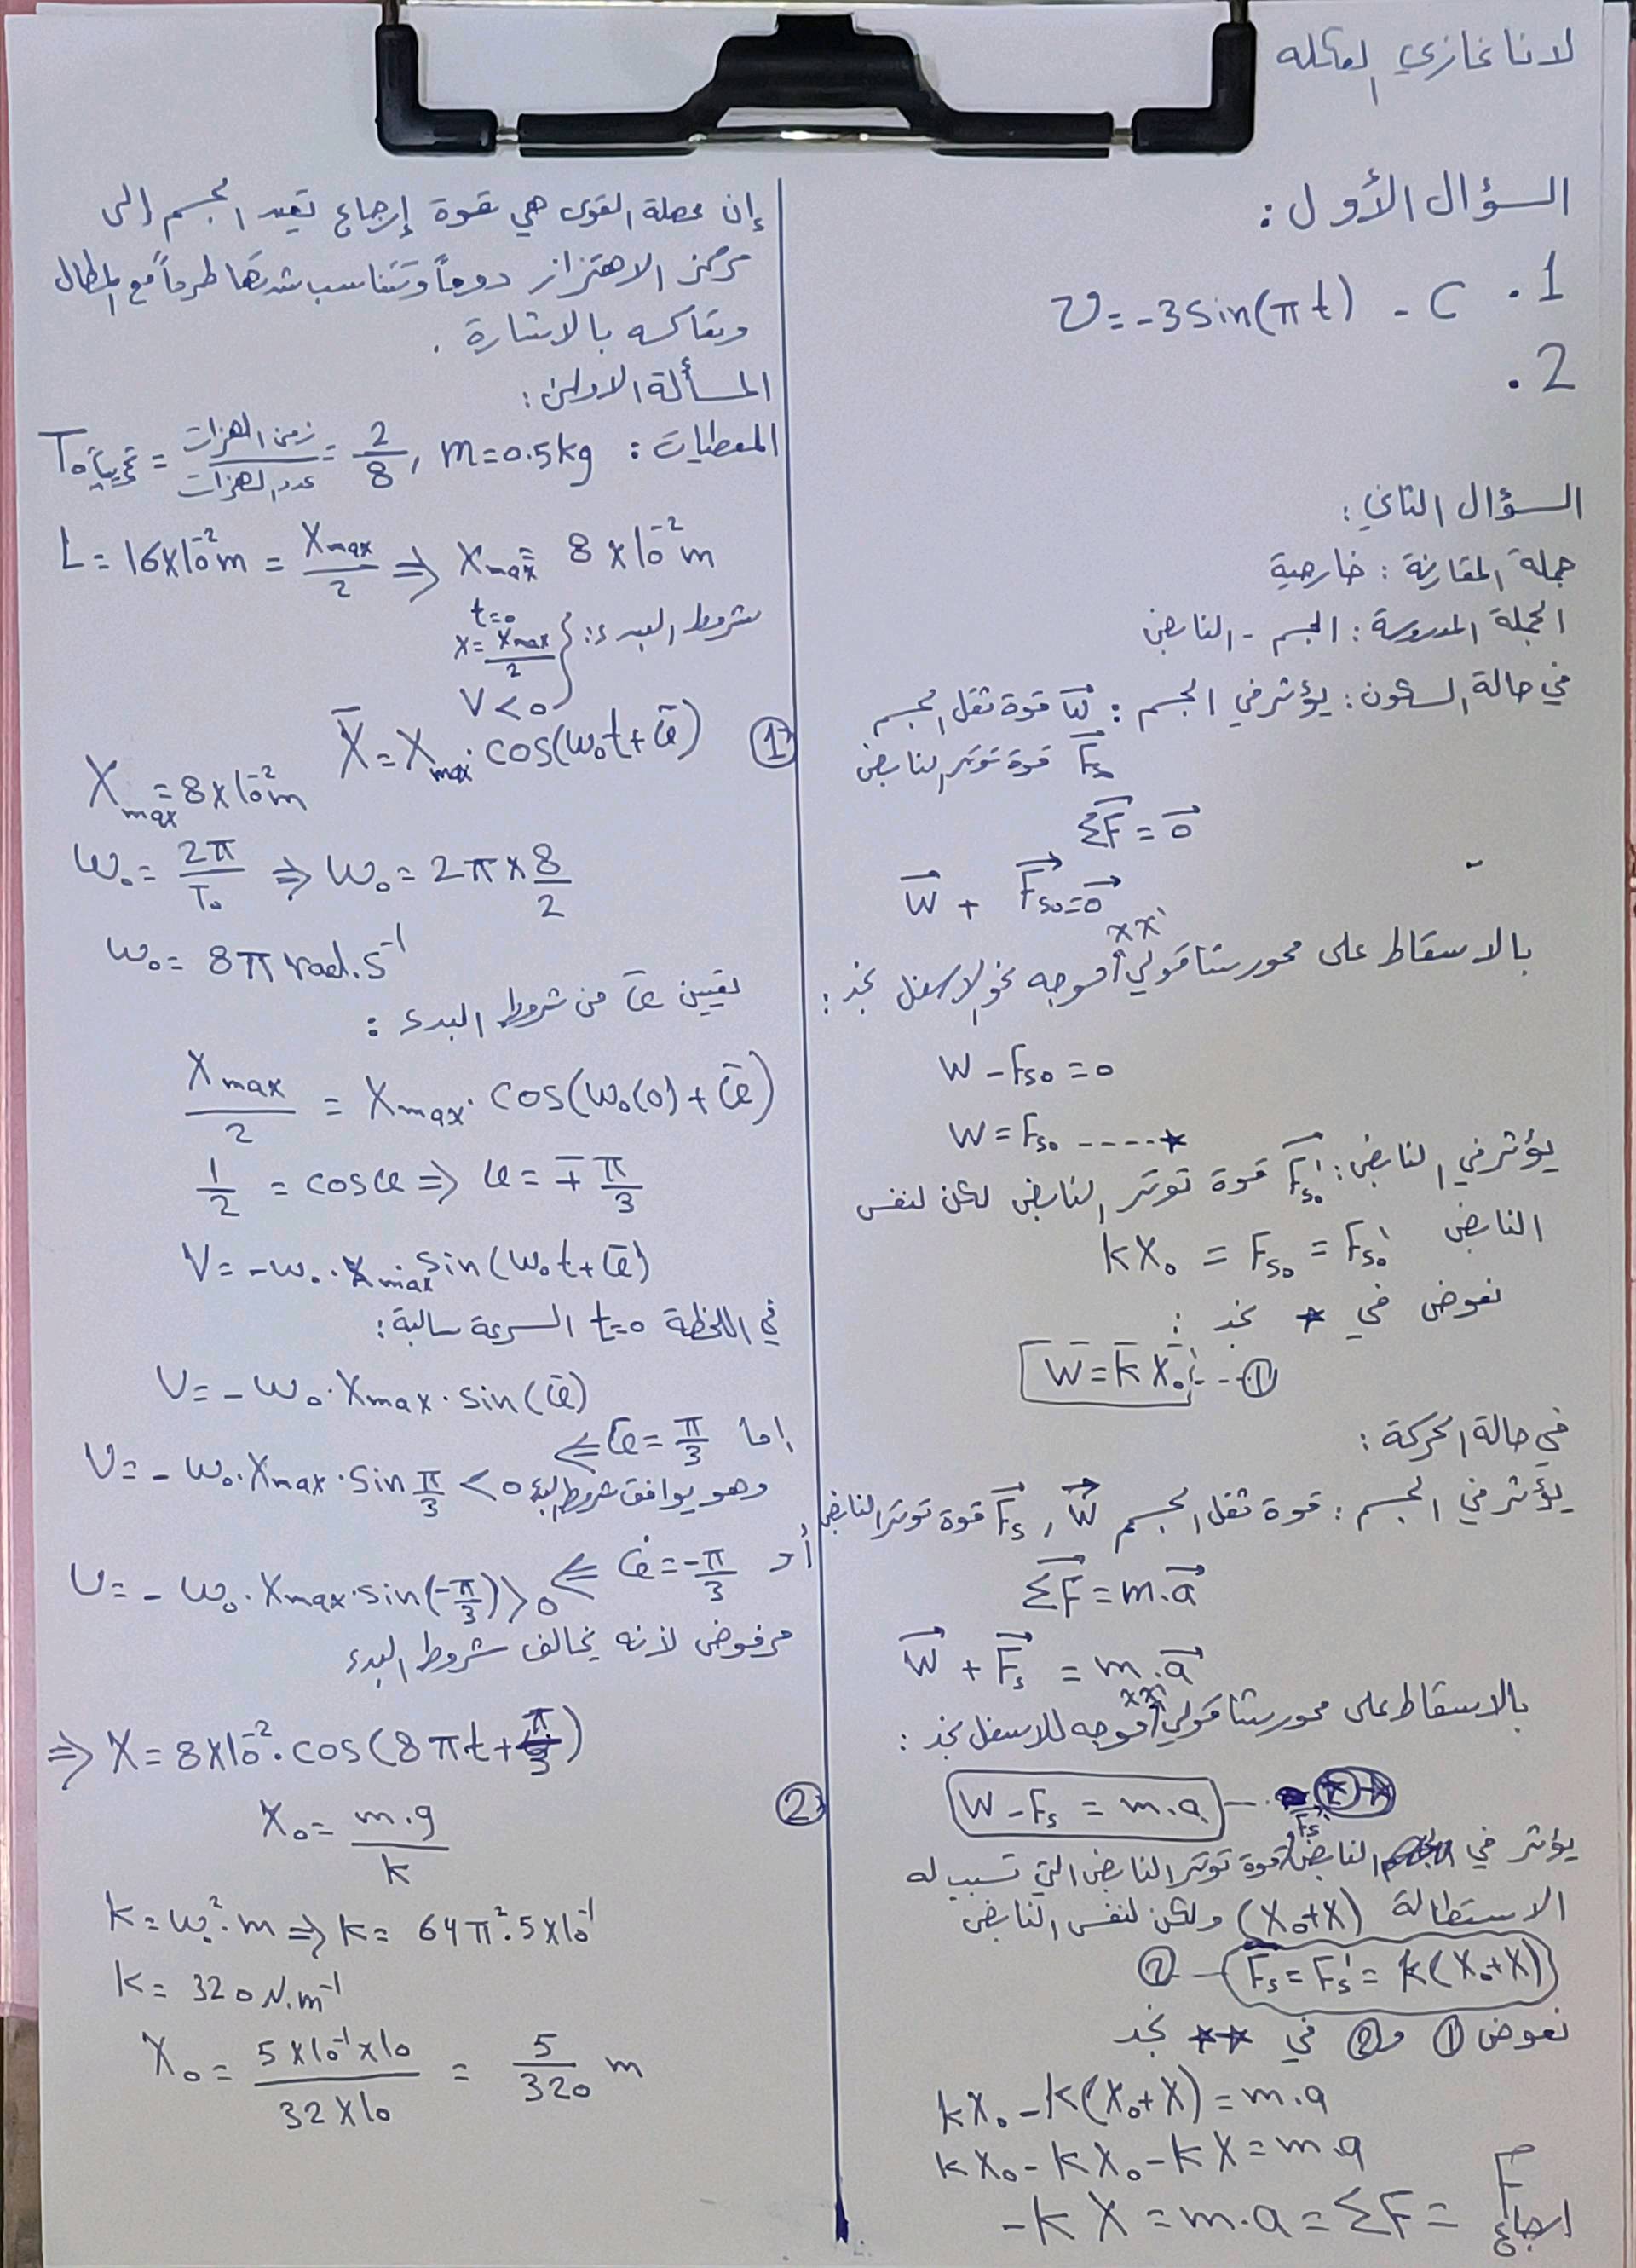 لانا غازي
السؤال الأول :
1. C - v = -3 sin(πt)
2.
السؤال الثاني :
جملة المقارنة : خارجية
الجملة المدروسة : الجسم - النابض
في حالة السكون : يؤثر في الجسم : W قوة ثقل الجسم
Fs قوة توتر النابض
ΣF = 0
W + Fs0 = 0
بالاسقاط على محور شاقولي xx' موجه نحو الاسفل نجد :
W - Fs0 = 0
W = Fs0 ---- *
يؤثر في النابض : F's0 قوة توتر النابض لكن لنفس
النابض kX0 = Fs0 = F's0
نعوض في * نجد :
W = kX0 -- ①
في حالة الحركة :
يؤثر في الجسم : قوة ثقل الجسم W , Fs قوة توتر النابض
ΣF = m.a
W + Fs = m.a
بالاسقاط على محور شاقولي xx' موجه للاسفل نجد :
W - Fs = m.a -- **
يؤثر في النابض F's قوة توتر النابض التي تسبب له
الاستطالة (X0+X) ولكن لنفس النابض
Fs = F's = k(X0+X) - ②
نعوض ① و ② في ** نجد
kX0 - k(X0+X) = m.a
kX0 - kX0 - kX = m.a
-kX = m.a = ΣF = F ارجاع
إن محصلة القوى هي قوة إرجاع تعيد الجسم إلى
مركز الاهتزاز دوماً وتتناسب شدتها طرداً مع المطال
وتعاكسه بالاشارة .
المسألة الاولى :
المعطيات : m = 0.5 kg , T0 تجريبياً = زمن الهزات / عدد الهزات = 2/8
L = 16×10⁻² m = Xmax/2 ⇒ Xmax = 8×10⁻² m
شروط البدء : t=0
x = Xmax/2
V<0
① X = Xmax . cos(ω0t + φ)
Xmax = 8×10⁻² m
ω0 = 2π/T0 ⇒ ω0 = 2π × 8/2
ω0 = 8π rad.s⁻¹
تعيين φ من شروط البدء :
Xmax/2 = Xmax . cos(ω0(0) + φ)
1/2 = cosφ ⇒ φ = ∓ π/3
V = -ω0 . Xmax . sin(ω0t + φ)
في اللحظة t=0 السرعة سالبة :
V = -ω0 . Xmax . sin(φ)
إما φ = π/3 ⇐
V = -ω0 . Xmax . sin π/3 < 0 وهو يوافق شروط البدء
أو φ = -π/3 ⇐
V = -ω0 . Xmax . sin(-π/3) > 0
مرفوض لأنه يخالف شروط البدء
⇒ X = 8×10⁻² . cos(8πt + π/3)
② X0 = m.g/k
k = ω0² . m ⇒ k = 64π² . 5×10⁻¹
k = 320 N.m⁻¹
X0 = 5×10⁻¹×10 / 32×10 = 5/320 m